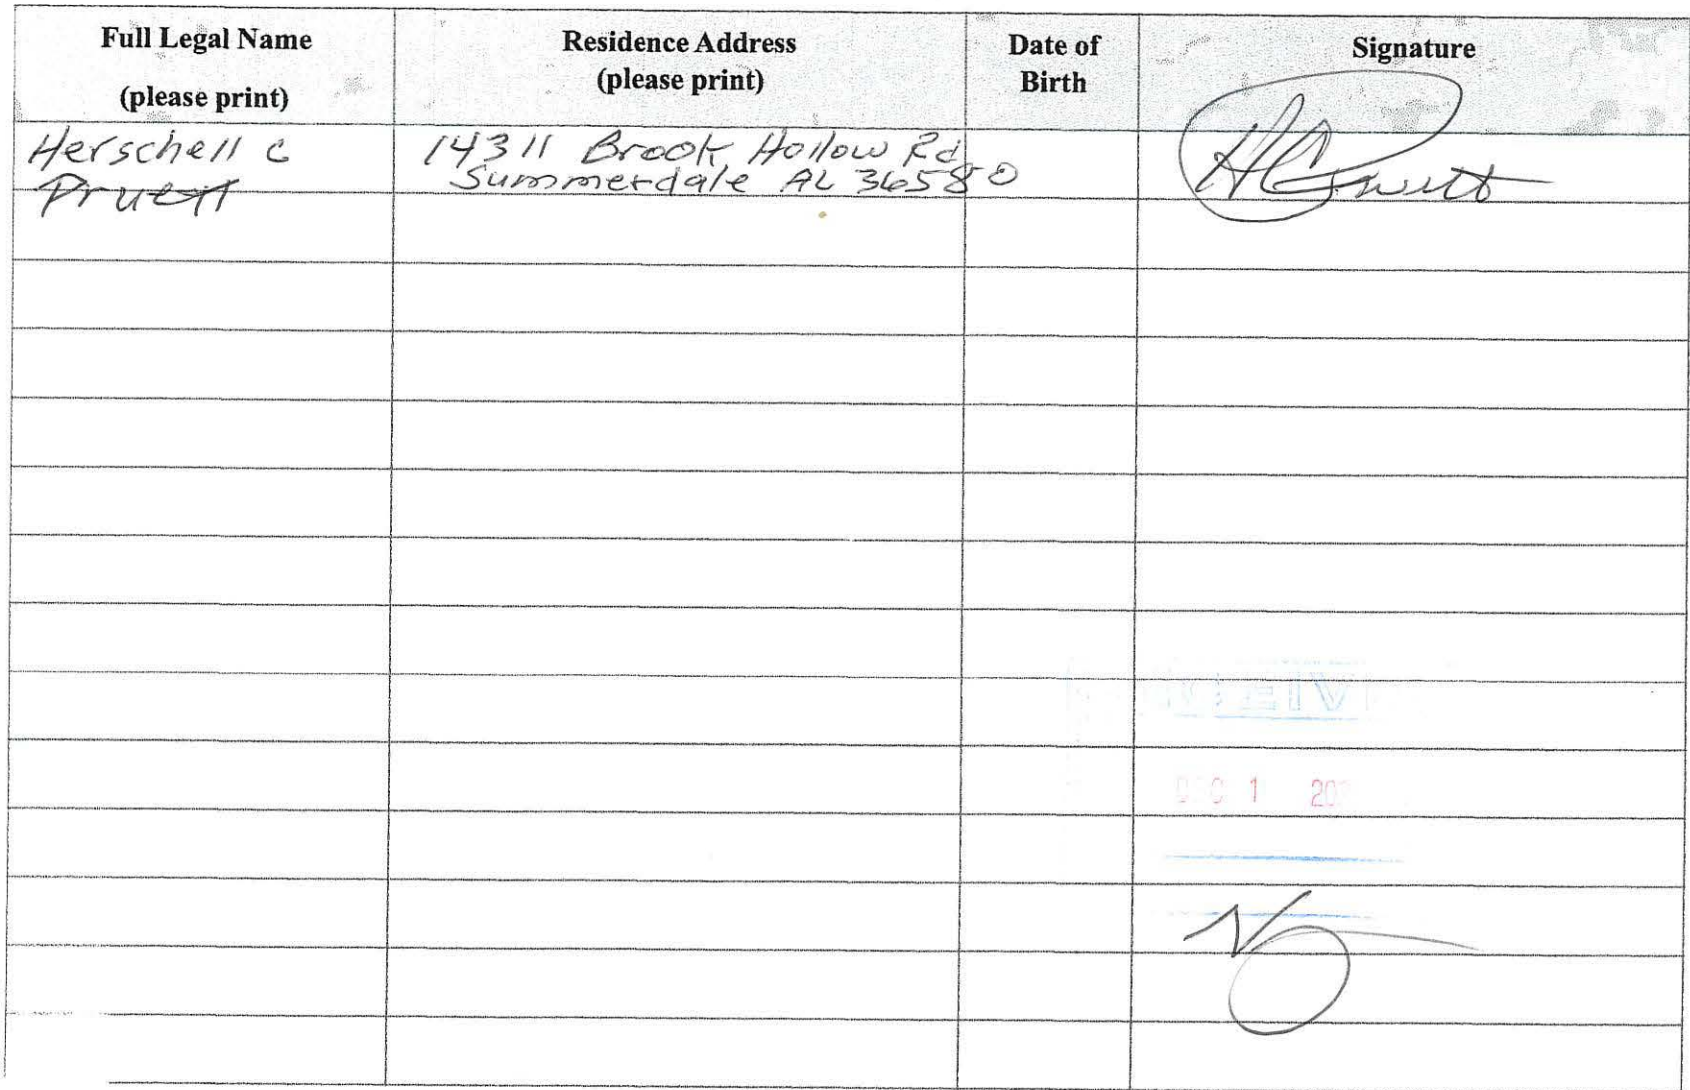 Full Legal Name
(please print)
Residence Address
(please print)
Date of
Birth
Signature
Herschell C
Pruett
14311 Brook Hollow Rd
Summerdale AL 36580
HC Pruett
1 20